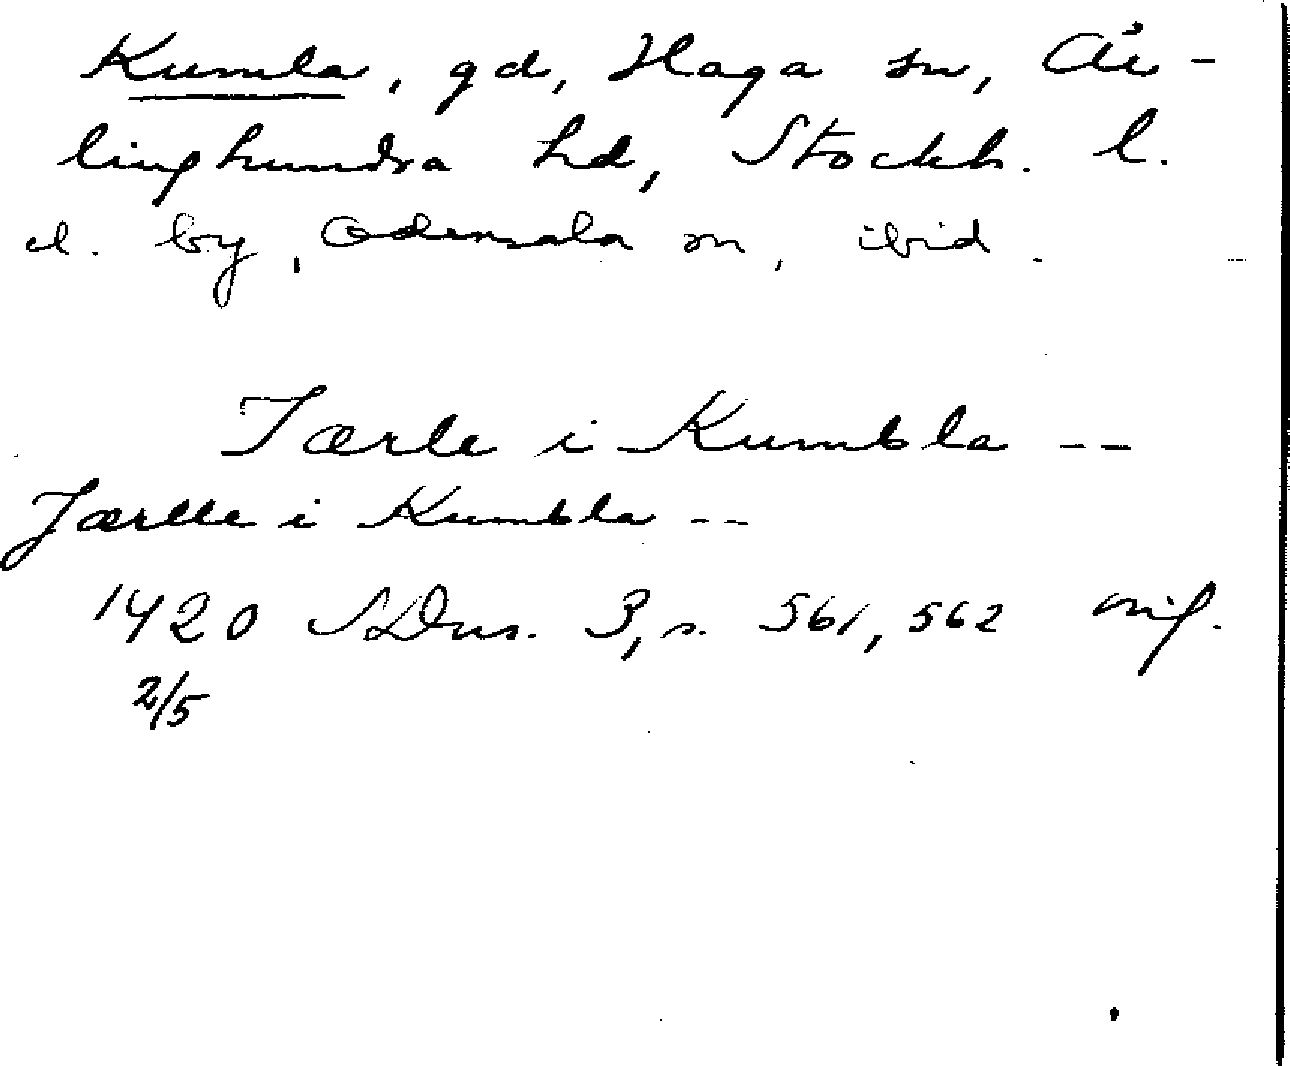 Kumla, gd, Haga sn, Är-
linghundra hd, Stockh. l.
el. by, Odensala sn, ibid.
Jærle i Kumbla --
Jærlle i Kumbla --
1420 SDns. 3, s. 561, 562
2/5